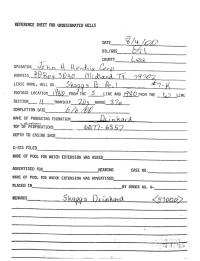 REFERENCE SHEET FOR UNDESIGNATED WELLS
DATE 8/4/00
OIL/GAS Oil
COUNTY Lea
OPERATOR John H Hendrix Corp
ADDRESS P.O. Box 3040 Midland TX 79702
LEASE NAME, WELL NO. Skaggs B
FOOTAGE LOCATION 1980 FROM THE S LINE AND 1980 FROM THE W LINE
SECTION TOWNSHIP 20s RANGE 37e
COMPLETION DATE
NAME OF PRODUCING FORMATION Drinkard
TOP OF PERFORATIONS 6677-6857
DEPTH TO CASING SHOE
C-123 FILED
NAME OF POOL FOR WHICH EXTENSION WAS ASKED
ADVERTISED FOR HEARING CASE NO.
NAME OF POOL FOR WHICH EXTENSION WAS ADVERTISED
PLACED IN BY ORDER NO. R-
REMARKS Skaggs Drinkard (57000)